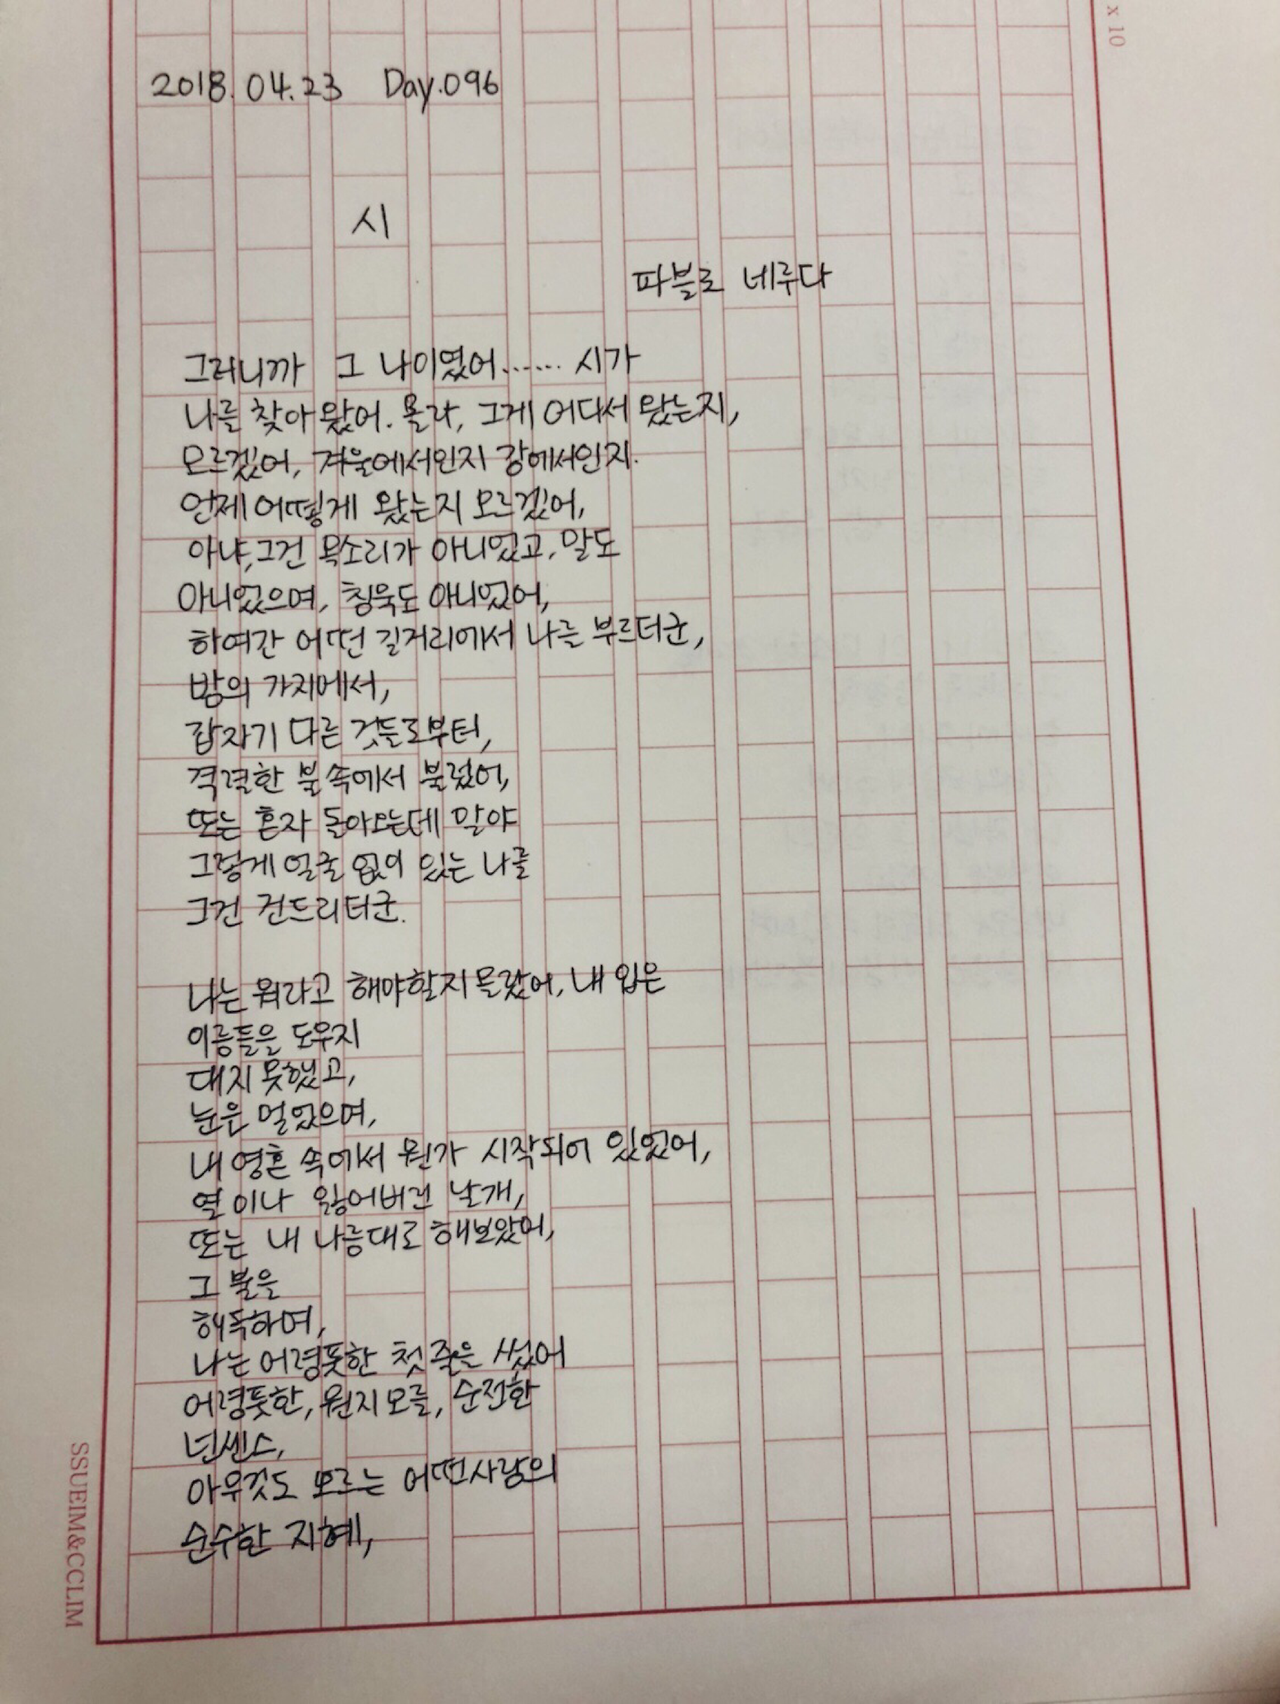 x 10
2018. 04. 23 Day. 096
시
파블로 네루다
그러니까 그 나이였어...... 시가
나를 찾아왔어. 몰라, 그게 어디서 왔는지,
모르겠어, 겨울에서인지 강에서인지.
언제 어떻게 왔는지 모르겠어,
아냐, 그건 목소리가 아니었고, 말도
아니었으며, 침묵도 아니었어,
하여간 어떤 길거리에서 나를 부르더군,
밤의 가지에서,
갑자기 다른 것들로부터,
격렬한 불 속에서 불렀어,
또는 혼자 돌아오는데 말야
그렇게 얼굴 없이 있는 나를
그건 건드리더군.
나는 뭐라고 해야할지 몰랐어, 내 입은
이름들을 도우지
대지 못했고,
눈은 멀었으며,
내 영혼 속에서 뭔가 시작되어 있었어,
열이나 잃어버린 날개,
또는 내 나름대로 해보았어,
그 불을
해독하며,
나는 어렴풋한 첫 줄을 썼어
어렴풋한, 뭔지 모를, 순전한
넌센스,
아무것도 모르는 어떤사람의
순수한 지혜,
SSUEIM&CCLIM